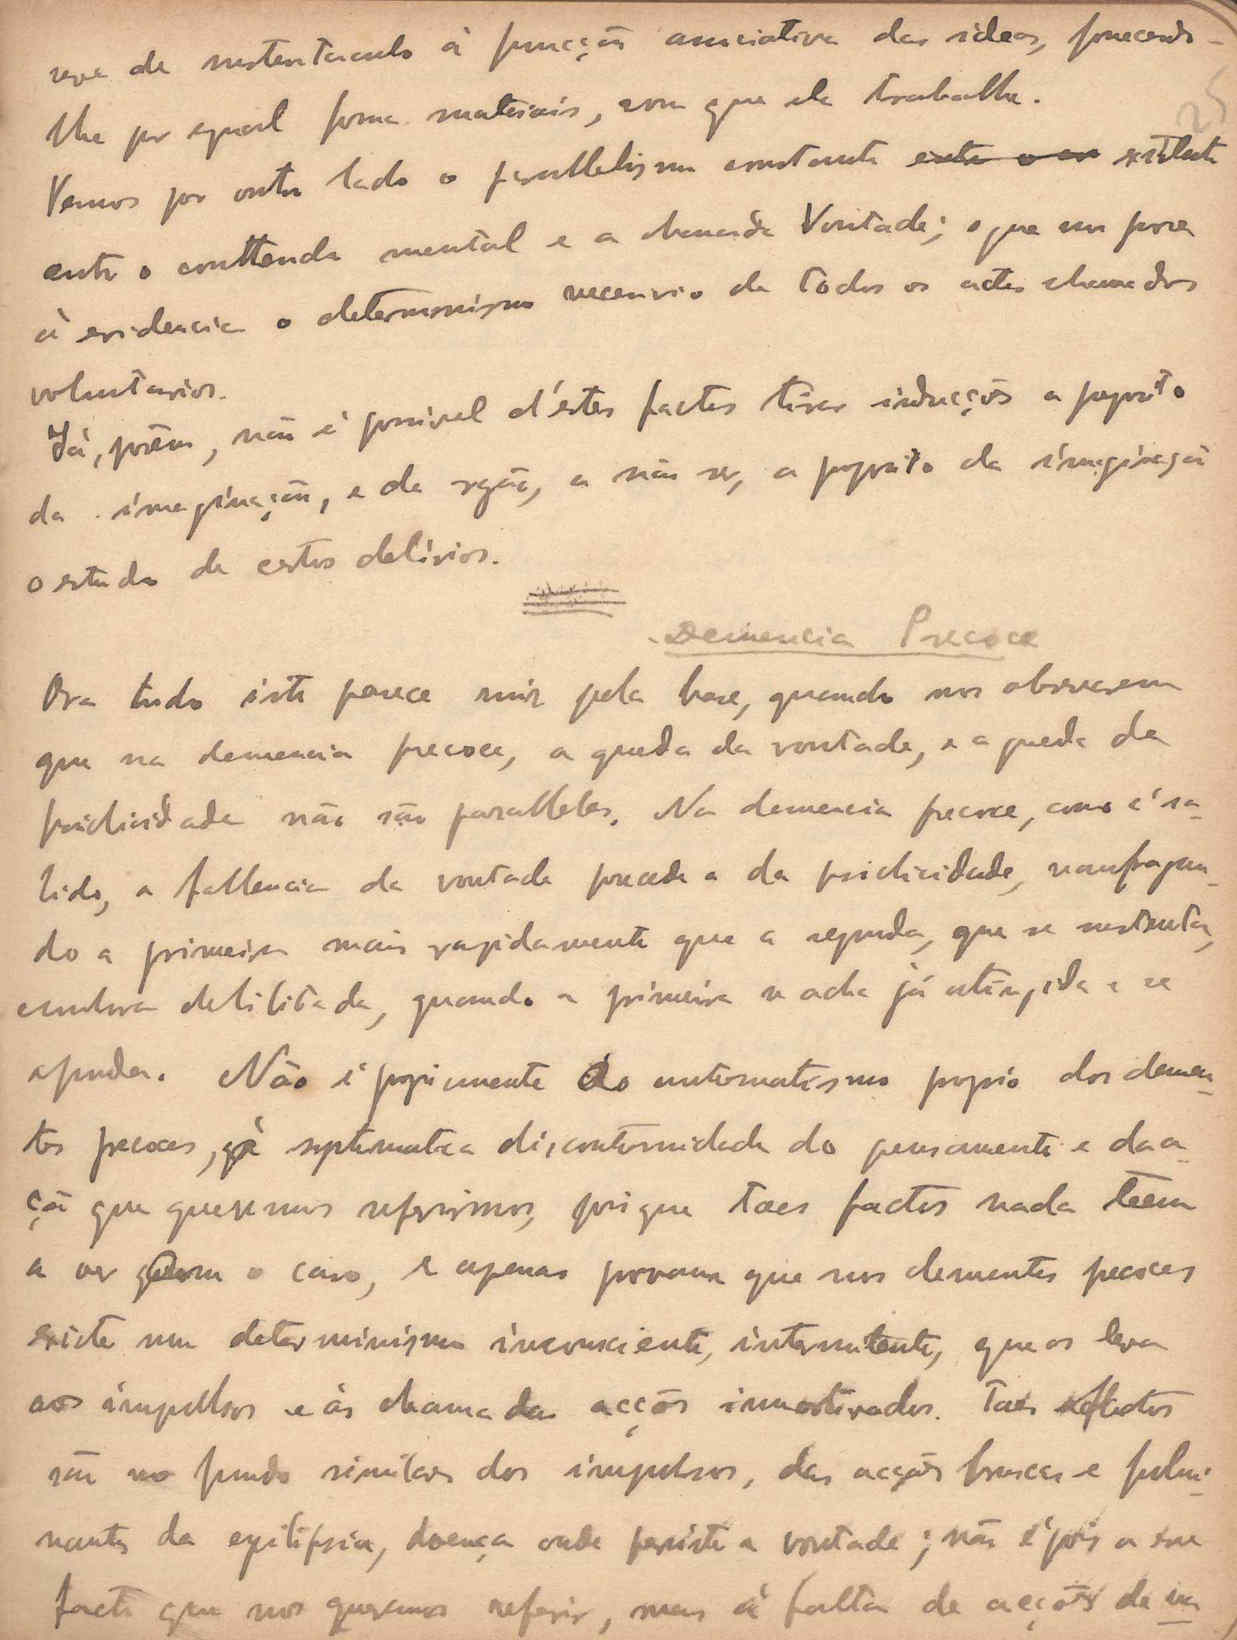 serve de sustentaculo á funcção associativa das ideas, fornecendo-
lhe por egual forma materiais, com que ela trabalha.
Vemos por outro lado o parallelismo constante entre o existente
entre o conttendo mental e a chamada Vontade; o que nos prova
á evidencia o determonismo necessario de todos os actos chamados
voluntarios.
Já, porêm, não é possivel d'estes factos tirar inducções a proposito
da imaginação, e da rasão, a não ser, a proposito da imaginação
o estudo de certos delirios.
Demencia Precoce
Ora tudo isto parece ruir pela base, quando nos observarem
que na demencia precoce, a queda da vontade, e a queda da
psichicidade não são parallelas. Na demencia precoce, como é sa-
bido, a fallencia da vontade precede a da psichicidade, naufragan-
do a primeira mais rapidamente que a segunda, que se sustenta,
embora debilitada, quando a primeira se acha já atingida e se
afunda. Não é propriamente ao automatismo proprio dos demen-
tes precoces, á systematica discontinuidade do pensamento e da a-
ção que queremos referirmos, porque taes factos nada têem
a ver com o caso, e apenas provam que nos dementes precoces
existe um determinismo inconsciente, intermitente, que os leva
aos impulsos e ás chamadas acções immotivados. Taes factos
são no fundo similares dos impulsos, das acções bruscas e fulmi-
nantes da epilepsia, doença onde persiste a vontade; não é pois a esse
facto que nos queremos referir, mas á falta de acções de